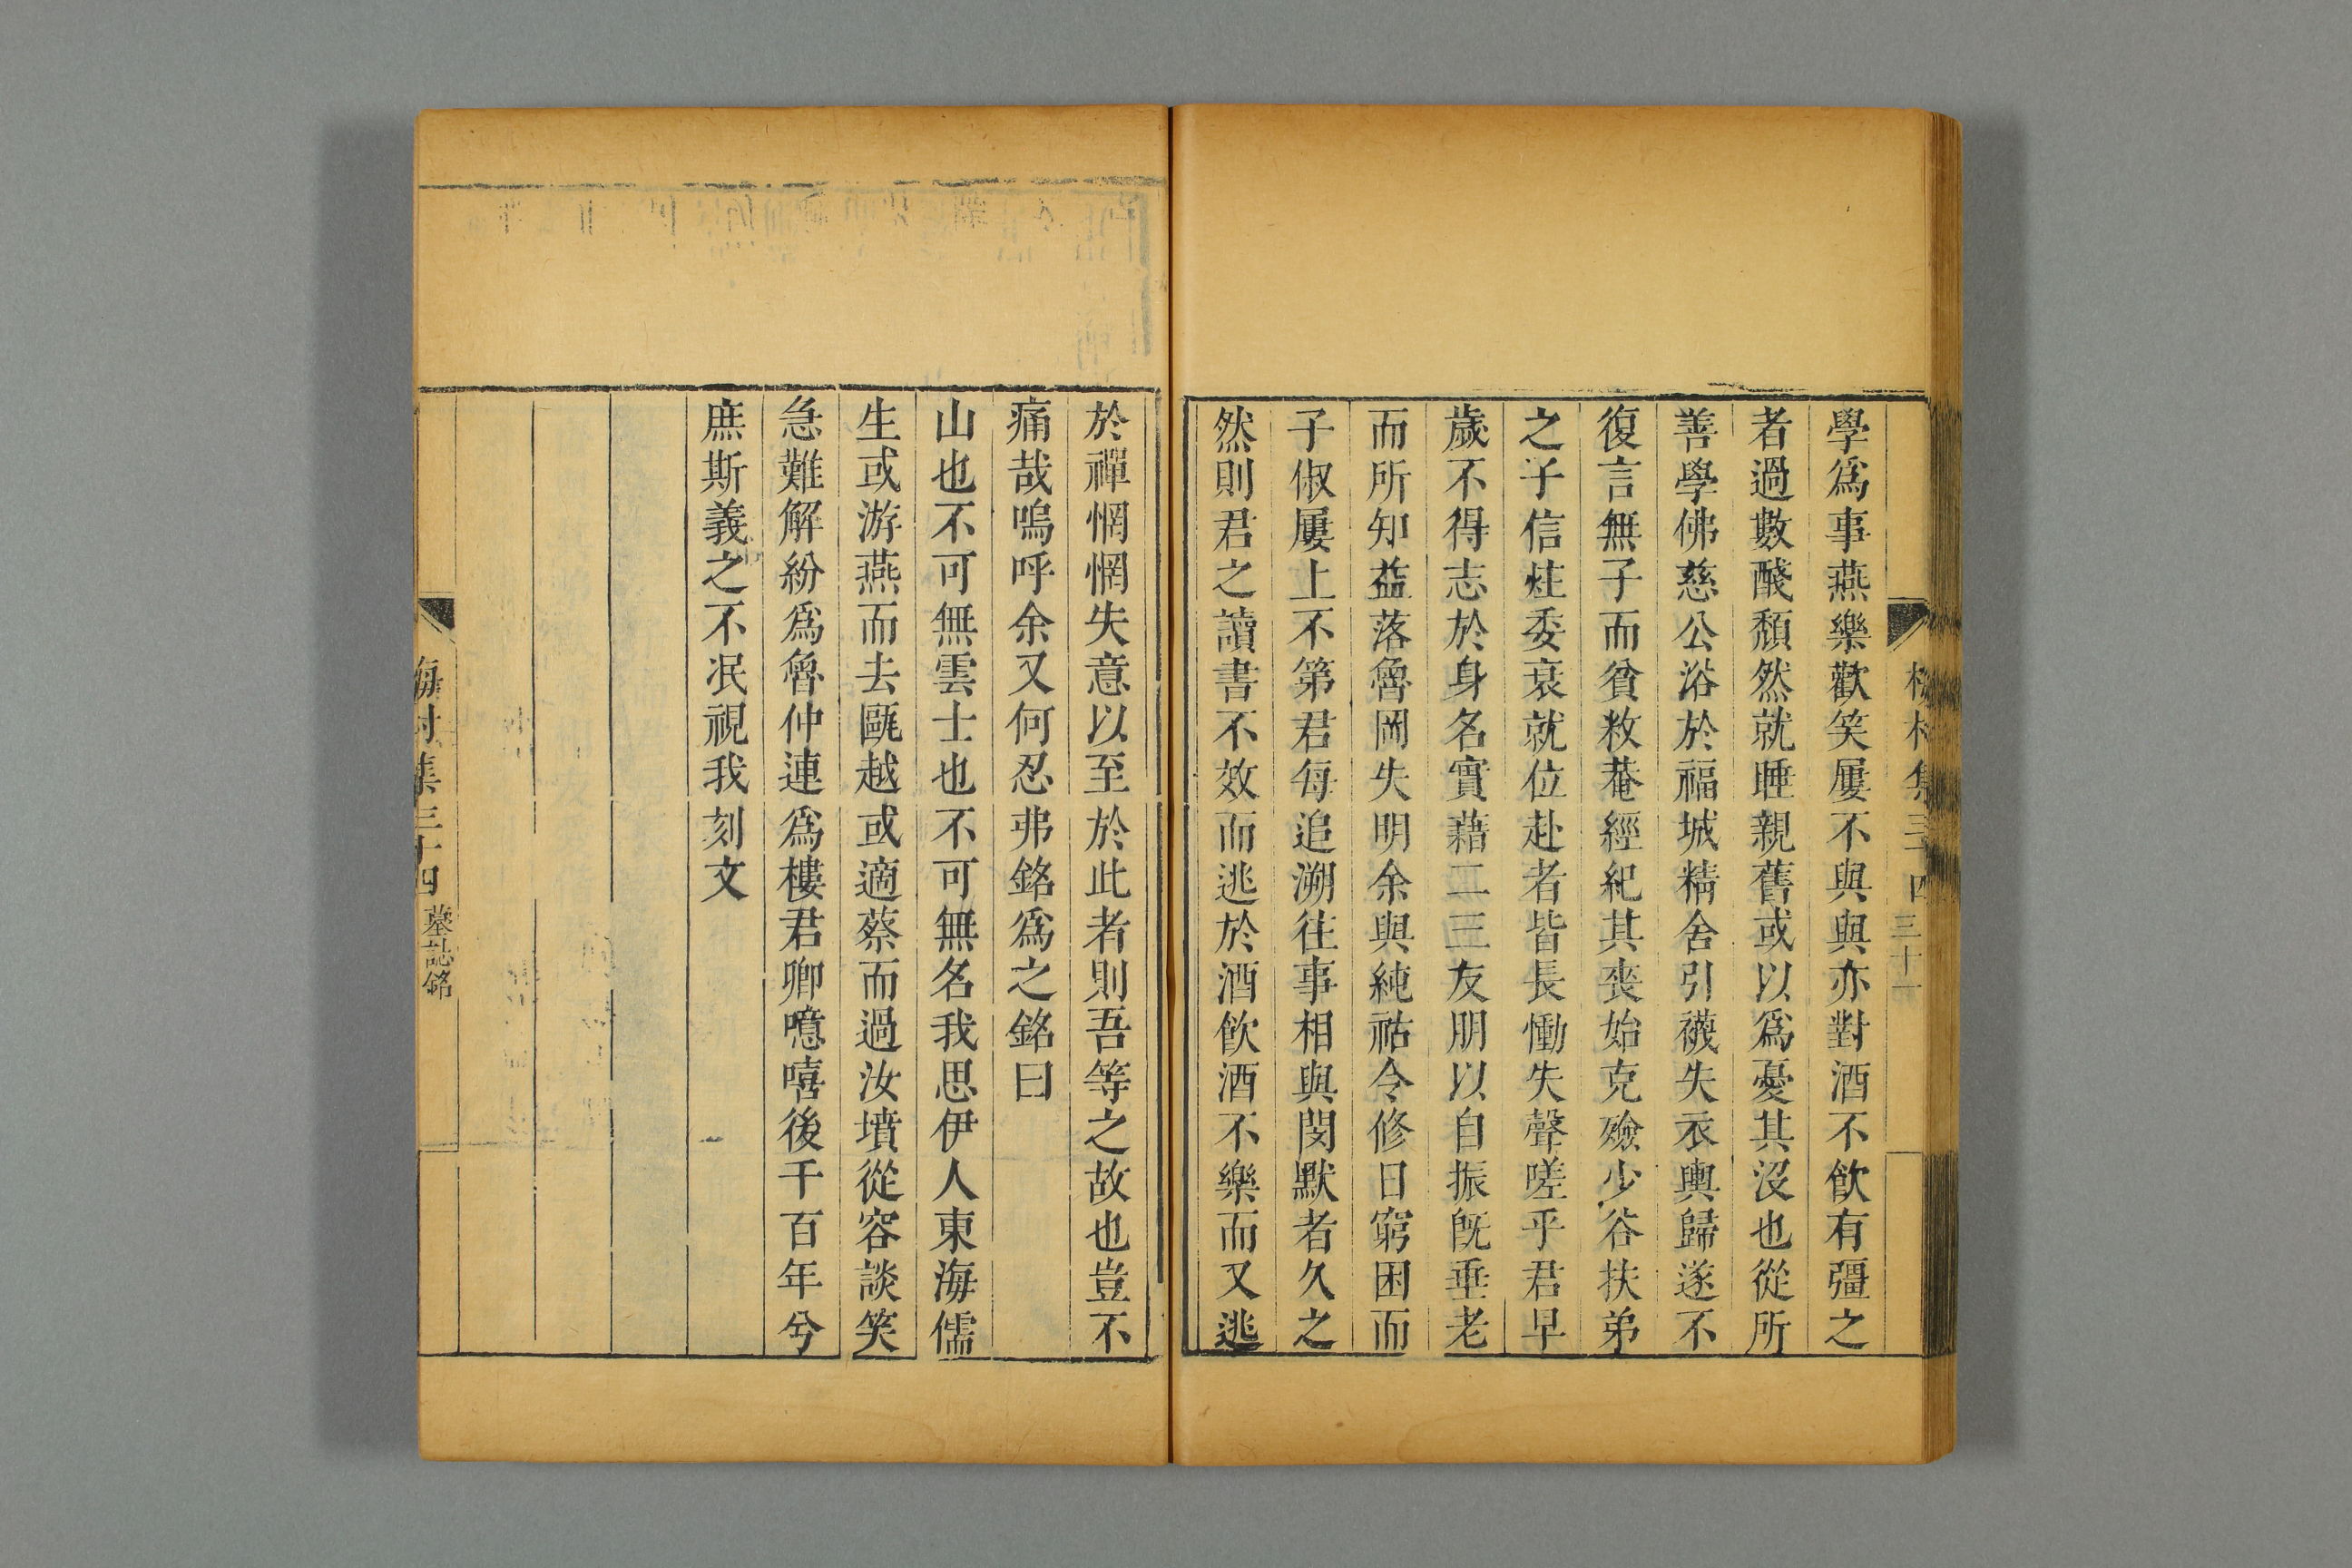 學爲事燕樂歡笑屢不與與亦對酒不飲有彊之
者過數醆頹然就睡親舊或以爲憂其沒也從所
善學佛慈公浴於福城精舍引襪失衣輿歸遂不
復言無子而貧敉菴經紀其喪始克殮少谷扶弟
之子信炷委衰就位赴者皆長慟失聲嗟乎君早
歲不得志於身名實藉二三友朋以自振旣垂老
而所知益落魯岡失明余與純祜令修日窮困而
子俶屢上不第君每追溯往事相與閔默者久之
然則君之讀書不效而逃於酒飮酒不樂而又逃
三十一
於禪惘惘失意以至於此者則吾等之故也豈不
痛哉嗚呼余又何忍弗銘爲之銘曰
山也不可無雲士也不可無名我思伊人東海儒
生或游燕而去甌越或適蔡而過汝墳從容談笑
急難解紛爲魯仲連爲樓君卿噫嘻後千百年兮
庶斯義之不泯視我刻文
梅村集三十四 墓誌銘